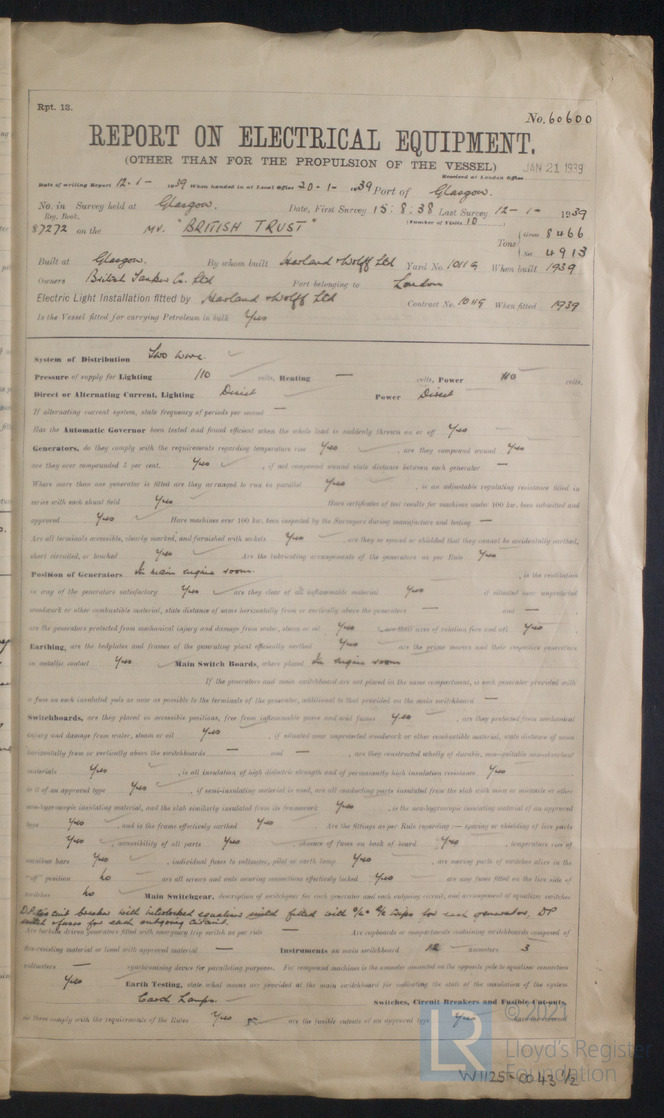 Rpt. 13.
No. 60600
REPORT ON ELECTRICAL EQUIPMENT.
(OTHER THAN FOR THE PROPULSION OF THE VESSEL)
JAN 21 1939
Received at London Office
Date of writing Report 12-1- 1939 When handed in at Local Office 20-1- 1939 Port of Glasgow.
No. in Survey held at Glasgow. Date, First Survey 15:8:38 Last Survey 12-1- 1939
Reg. Book. (Number of Visits 10
87272 on the MV. "BRITISH TRUST" Tons { Gross 8466
Net 4913
Built at Glasgow. By whom built Harland & Wolff Ltd Yard No. 1011G When built 1939
Owners British Tanker Co. Ltd Port belonging to London
Electric Light Installation fitted by Harland & Wolff Ltd Contract No. 1011G When fitted 1939
Is the Vessel fitted for carrying Petroleum in bulk Yes
System of Distribution Two wire.
Pressure of supply for Lighting 110 volts, Heating — volts, Power 110 volts.
Direct or Alternating Current, Lighting Direct Power Direct
If alternating current system, state frequency of periods per second —
Has the Automatic Governor been tested and found efficient when the whole load is suddenly thrown on or off Yes
Generators, do they comply with the requirements regarding temperature rise Yes, are they compound wound Yes
are they over compounded 5 per cent. Yes, if not compound wound state distance between each generator —
Where more than one generator is fitted are they arranged to run in parallel Yes, is an adjustable regulating resistance fitted in
series with each shunt field Yes Have certificates of test results for machines under 100 kw. been submitted and
approved Yes Have machines over 100 kw. been inspected by the Surveyors during manufacture and testing —
Are all terminals accessible, clearly marked, and furnished with sockets Yes, are they so spaced or shielded that they cannot be accidentally earthed,
short circuited, or touched Yes Are the lubricating arrangements of the generators as per Rule Yes
Position of Generators In main engine room., is the ventilation
in way of the generators satisfactory Yes are they clear of all inflammable material Yes if situated near unprotected
woodwork or other combustible material, state distance of same horizontally from or vertically above the generators — and —
are the generators protected from mechanical injury and damage from water, steam or oil Yes Yes
Earthing, are the bedplates and frames of the generating plant efficiently earthed Yes are the prime movers and their respective generators
in metallic contact Yes Main Switch Boards, where placed In engine room
If the generators and main switchboard are not placed in the same compartment, is each generator provided with
a fuse on each insulated pole as near as possible to the terminals of the generator, additional to that provided on the main switchboard —
Switchboards, are they placed in accessible positions, free from inflammable gases and acid fumes Yes, are they protected from mechanical
injury and damage from water, steam or oil Yes, if situated near unprotected woodwork or other combustible material, state distance of same
horizontally from or vertically above the switchboards — and —, are they constructed wholly of durable, non-ignitable non-absorbent
materials Yes, is all insulation of high dielectric strength and of permanently high insulation resistance Yes
is it of an approved type Yes, if semi-insulating material is used, are all conducting parts insulated from the slab with mica or micanite or other
non-hygroscopic insulating material, and the slab similarly insulated from its framework Yes, is the non-hygroscopic insulating material of an approved
type Yes, and is the frame effectively earthed Yes Are the fittings as per Rule regarding:— spacing or shielding of live parts
Yes, accessibility of all parts Yes, absence of fuses on back of board Yes, temperature rise of
omnibus bars Yes, individual fuses to voltmeter, pilot or earth lamp Yes, are moving parts of switches alive in the
"off" position No are all screws and nuts securing connections effectively locked Yes are any fuses fitted on the live side of
switches No Main Switchgear, description of switchgear for each generator and each outgoing circuit, and arrangement of equaliser switches
DP circuit breaker with interlocked equaliser switch fitted with trips for each generator, DP
switch & fuses for each outgoing circuit.
Are turbine driven generators fitted with emergency trip switch as per rule — Are cupboards or compartments containing switchboards composed of
fire-resisting material or lined with approved material — Instruments on main switchboard 12 ammeters 3
voltmeters — synchronising device for paralleling purposes. For compound machines is the ammeter connected on the opposite pole to equaliser connection
Yes Earth Testing, state what means are provided at the main switchboard for indicating the state of the insulation of the system
Earth Lamps. Switches, Circuit Breakers and Fusible Cut-outs,
do these comply with the requirements of the Rules Yes are the fusible cutouts of an approved type Yes
© 2021
LR
Lloyd's Register
Foundation
W1125-0043 1/2